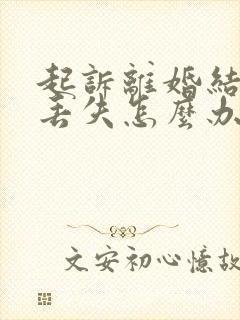 起訴離婚結
丟失怎麼办
文安初心憶故